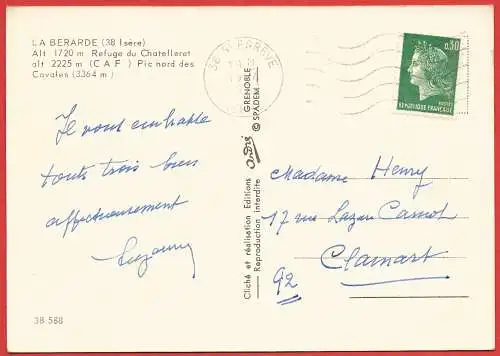 LA BERARDE (38 Isère)
Alt 1720 m Refuge du Chatelleret
alt 2225 m (C A F) Pic nord des
Cavales (3364 m)
Je vous embrasse
tous trois bien
affectueusement
Suzanne
38 588
Cliché et réalisation Editions André GRENOBLE
Reproduction interdite © SPADEM
38 ST EGREVE
0,30
POSTES
REPUBLIQUE FRANÇAISE
Madame Henry
17 rue Lazare Carnot
Clamart
92